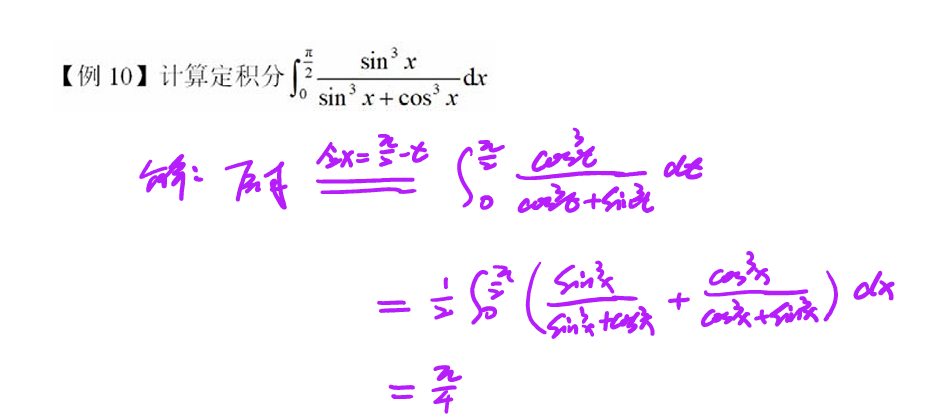 【例 10】计算定积分 ∫₀^{π/2} sin³ x / (sin³ x + cos³ x) dx
解: 原式 (令x = π/2 - t) = ∫₀^{π/2} cos³t / (cos³t + sin³t) dt
= 1/2 ∫₀^{π/2} ( sin³x / (sin³x + cos³x) + cos³x / (cos³x + sin³x) ) dx
= π/4